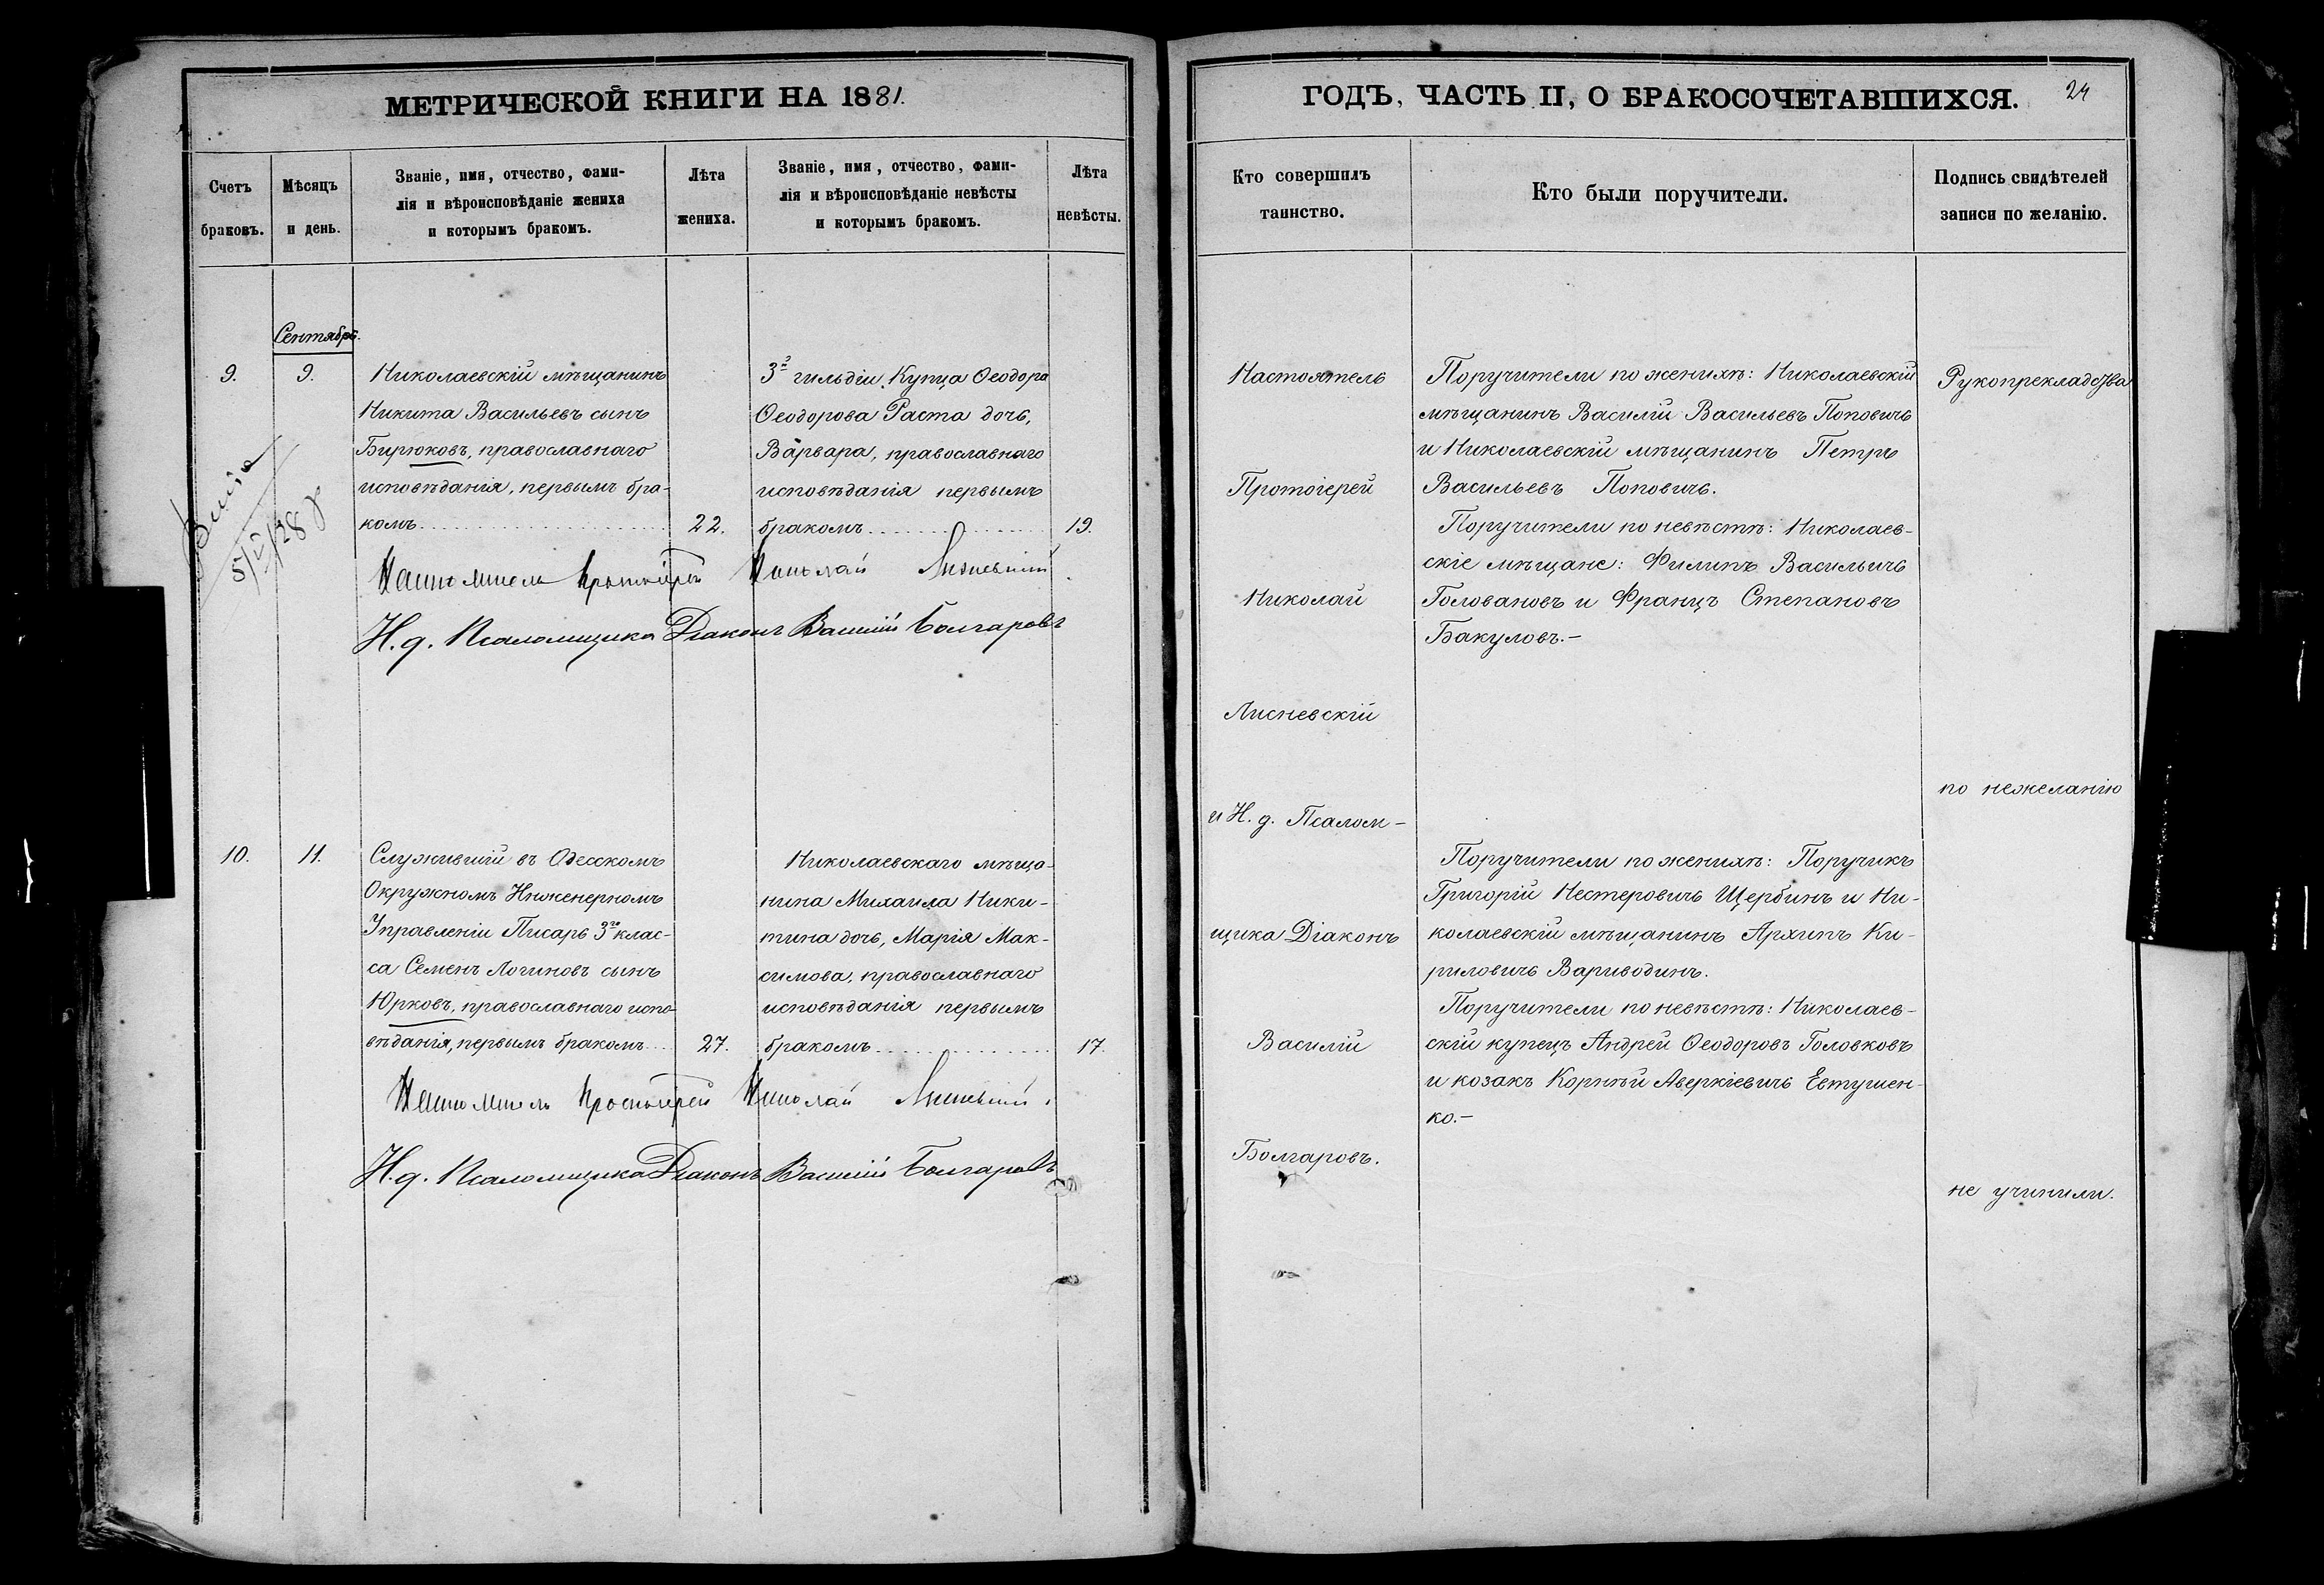 МЕТРИЧЕСКОЙ КНИГИ НА 1881.
Счетъ
браковъ.
Мѣсяцъ
и день.
Званіе, имя, отчество, фами-
лія и вѣроисповѣданіе жениха
и которымъ бракомъ.
Лѣта
жениха.
Званіе, имя, отчество, фами-
лія и вѣроисповѣданіе невѣсты
и которымъ бракомъ.
Лѣта
невѣсты.
Сентябрь.
9.
9.
Николаевскій мѣщанинъ
Никита Васильевъ сынъ
Бирюковъ, православнаго
исповѣданія, первымъ бра-
комъ
22.
3й гильдіи Купца Ѳеодора
Ѳеодорова Раста дочь,
Варвара, православнаго
исповѣданія первымъ
бракомъ
19.
5/V/28
Настоятель Протоіерей Николай Лисневскій
И. д. Псаломщика Діаконъ Василій Болгаровъ
10.
11.
Служившій въ Одесскомъ
Окружномъ Инженерномъ
Управленіи Писарь 3го клас-
са Семенъ Логиновъ сынъ
Юрковъ, православнаго испо-
вѣданія, первымъ бракомъ
27.
Николаевскаго мѣща-
нина Михаила Ники-
тина дочь, Марія Мак-
симова, православнаго
исповѣданія первымъ
бракомъ
17.
Настоятель Протоіерей Николай Лисневскій.
И. д. Псаломщика Діаконъ Василій Болгаровъ
ГОДЪ, ЧАСТЬ II, О БРАКОСОЧЕТАВШИХСЯ.
24
Кто совершилъ
таинство.
Кто были поручители.
Подпись свидѣтелей
записи по желанію.
Настоятель
Протоіерей
Николай
Лисневскій
и И. д. Псалом-
щика Діаконъ
Василій
Болгаровъ.
Поручители по женихѣ: Николаевскій
мѣщанинъ Василій Васильевъ Поповичъ
и Николаевскій мѣщанинъ Петръ
Васильевъ Поповичъ.
Поручители по невѣстѣ: Николаев-
скіе мѣщане: Филипъ Васильичъ
Головановъ и Францъ Степановъ
Бакуловъ.-
Поручители по женихѣ: Поручикъ
Григорій Нестеровичъ Щербинъ и Ни-
колаевскій мѣщанинъ Архипъ Ки-
риловичъ Вариводинъ.
Поручители по невѣстѣ: Николаев-
скій купецъ Андрей Ѳеодоровъ Головковъ
и козакъ Корнѣй Аверкіевичъ Евтушен-
ко.-
Рукопрекладства
по нежеланію
не учинили.